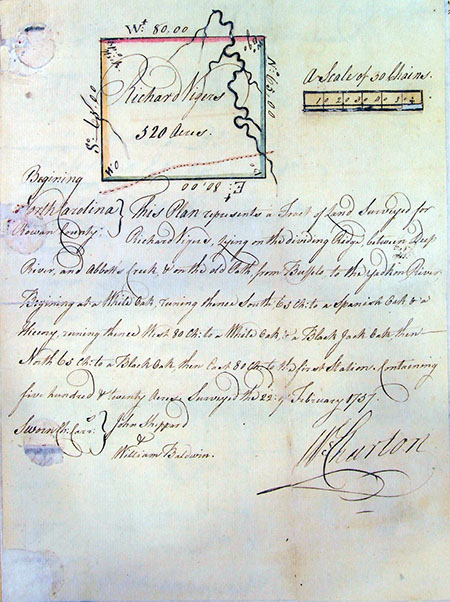 Wt. 80.00
A Scale of 50 Chains.
10 20 30 40 50
No. 65.00
So. 65.00
Richard Vigers
520 Acres.
W:O
Et. 80.00
Begining
North Carolina } This Plan represents a Tract of Land Surveyed for
Rowan County. Richard Vigers, lying on the dividing Ridge, between Deep
River, and Abbotts Creek, & on the old Path, from Buffelo to the Yadkin River
Begining at a White Oak, runing thence South, 65 Ch: to a Spanish Oak & a
Hicory, runing thence West 80 Ch: to a White Oak, & a Black Jack Oak then
North 65 Ch: to a Black Oak then East 80 Ch: to the first Station. Containing
five hundred & twenty Acres Surveyed the 22: of February 1757.
Sworn Ch: Carrs. } John Sheppard
&
William Baldwin.
Wm. Churton